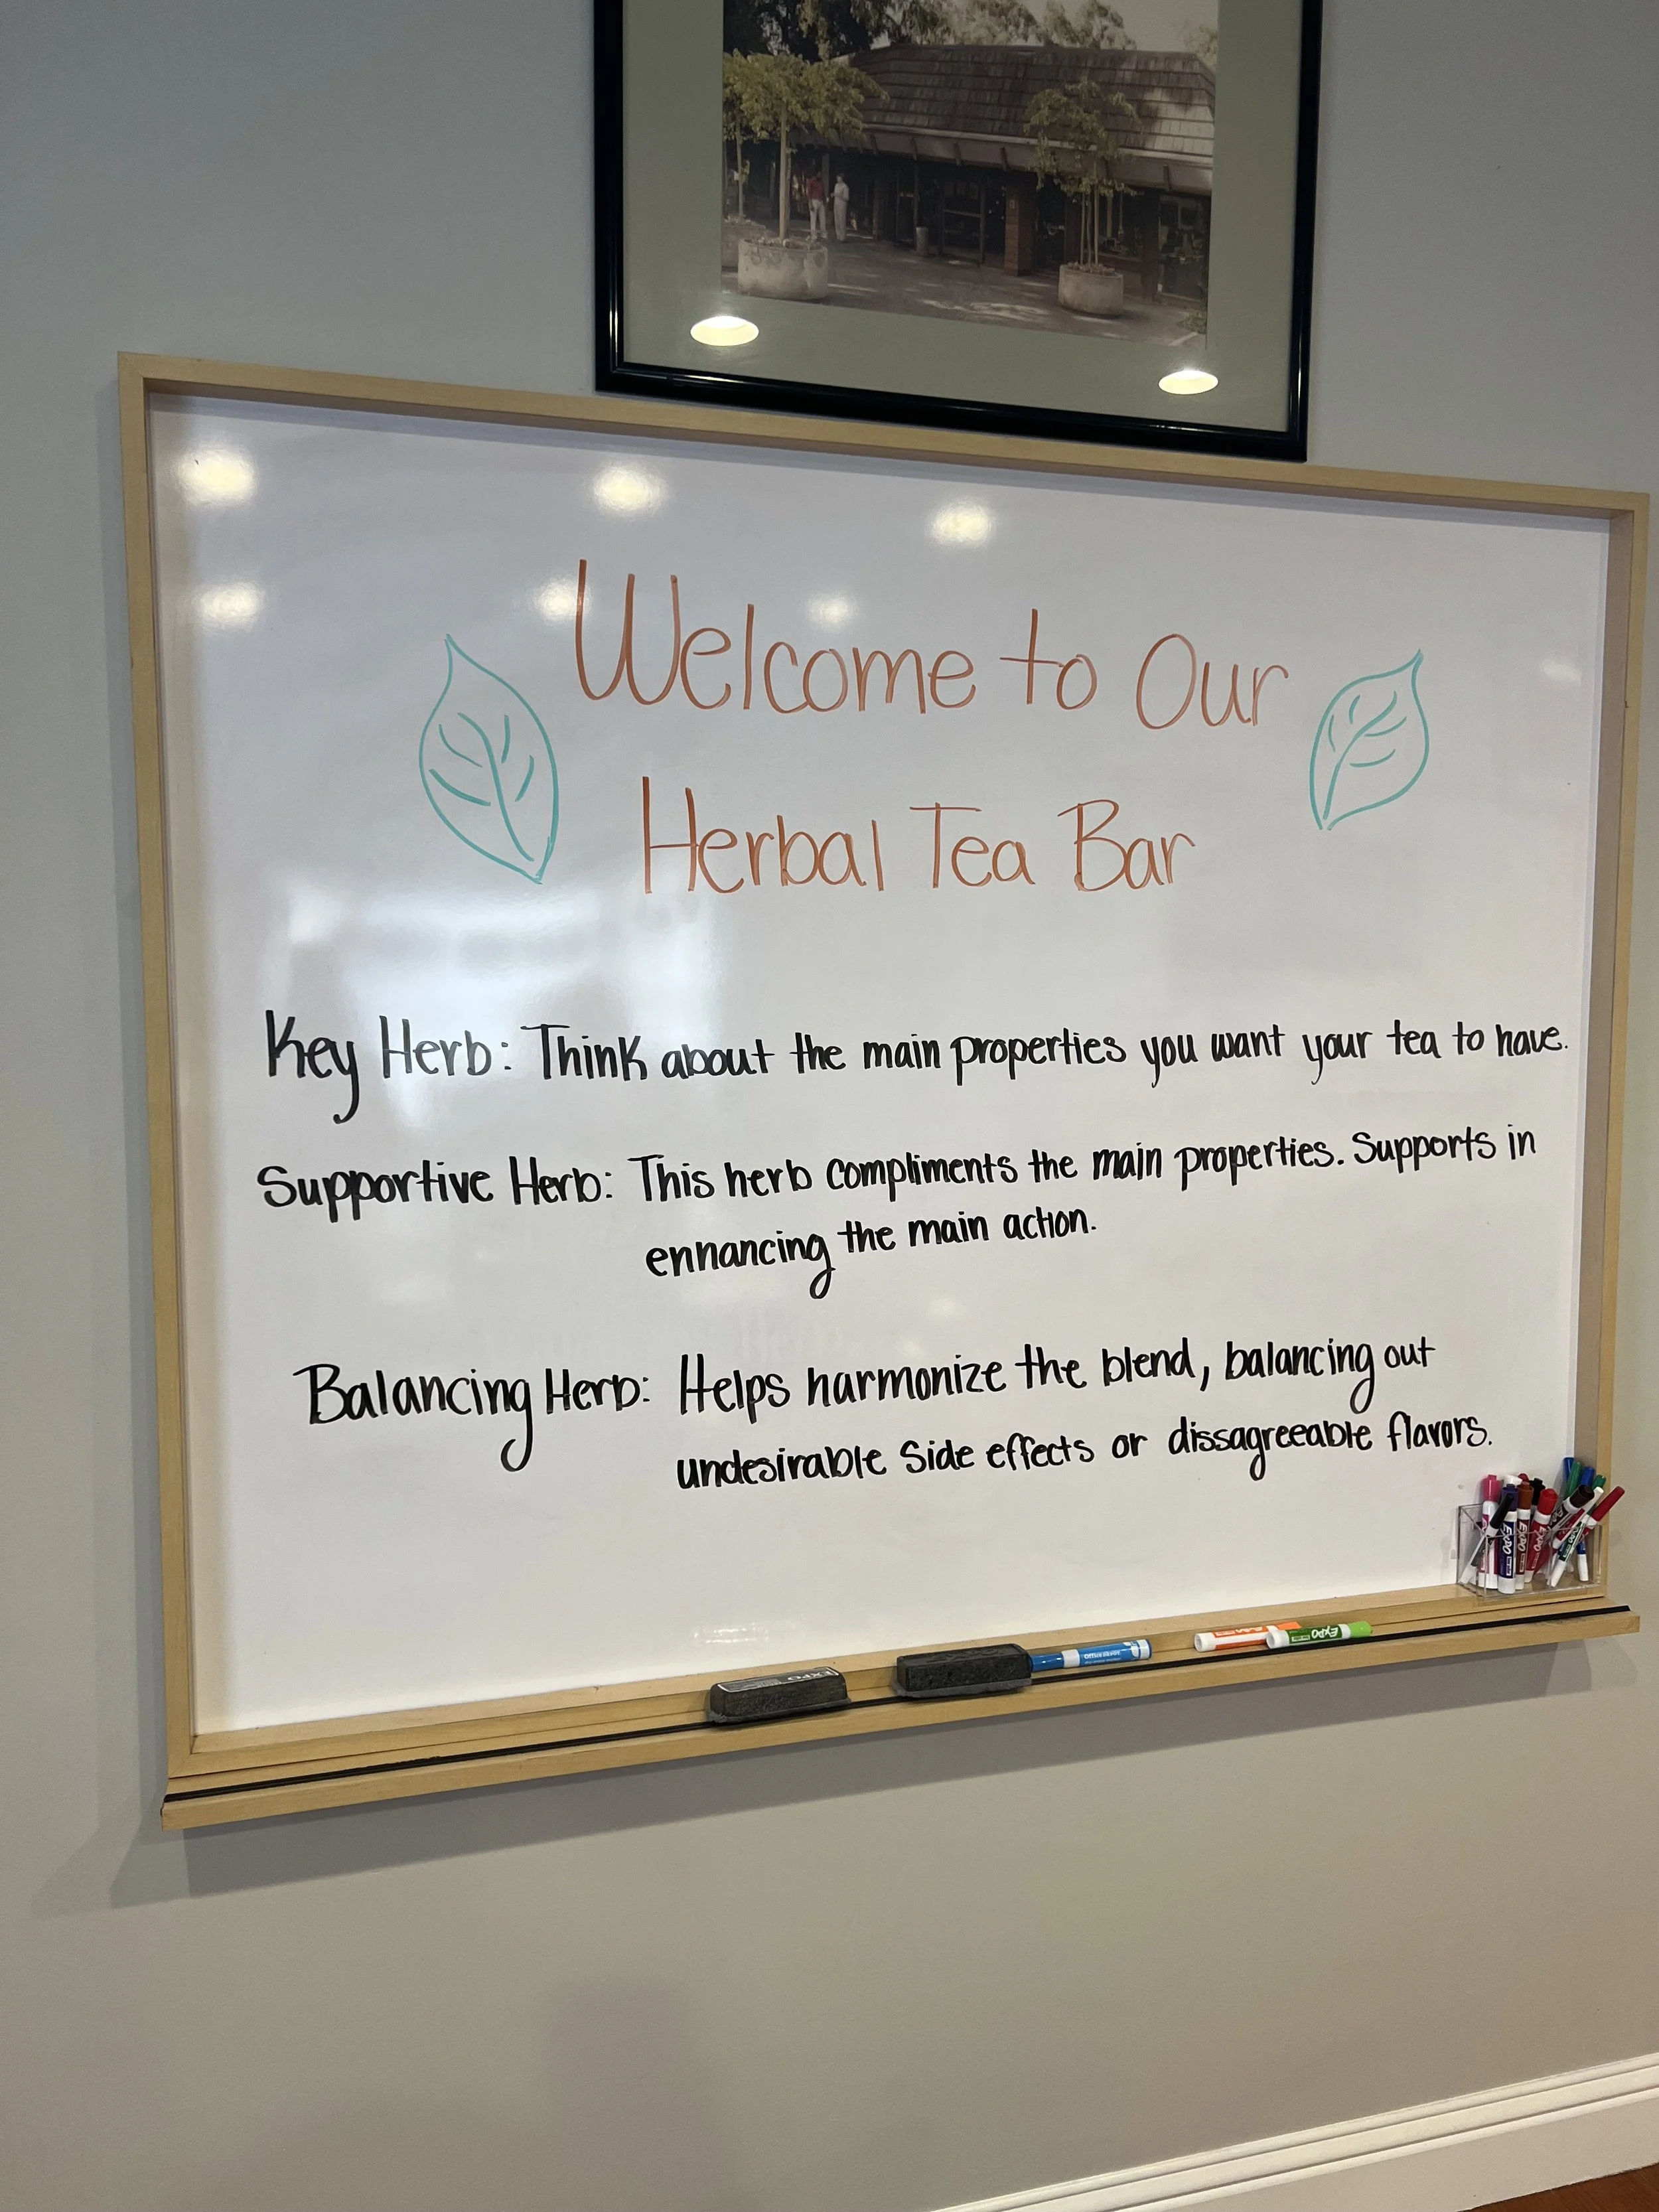 Welcome to Our
Herbal Tea Bar
Key Herb: Think about the main properties you want your tea to have.
Supportive Herb: This herb compliments the main properties. Supports in
enhancing the main action.
Balancing Herb: Helps harmonize the blend, balancing out
undesirable side effects or dissagreeable flavors.
EXPO
EXPO
EXPO
EXPO
Office DEPOT
EXPO